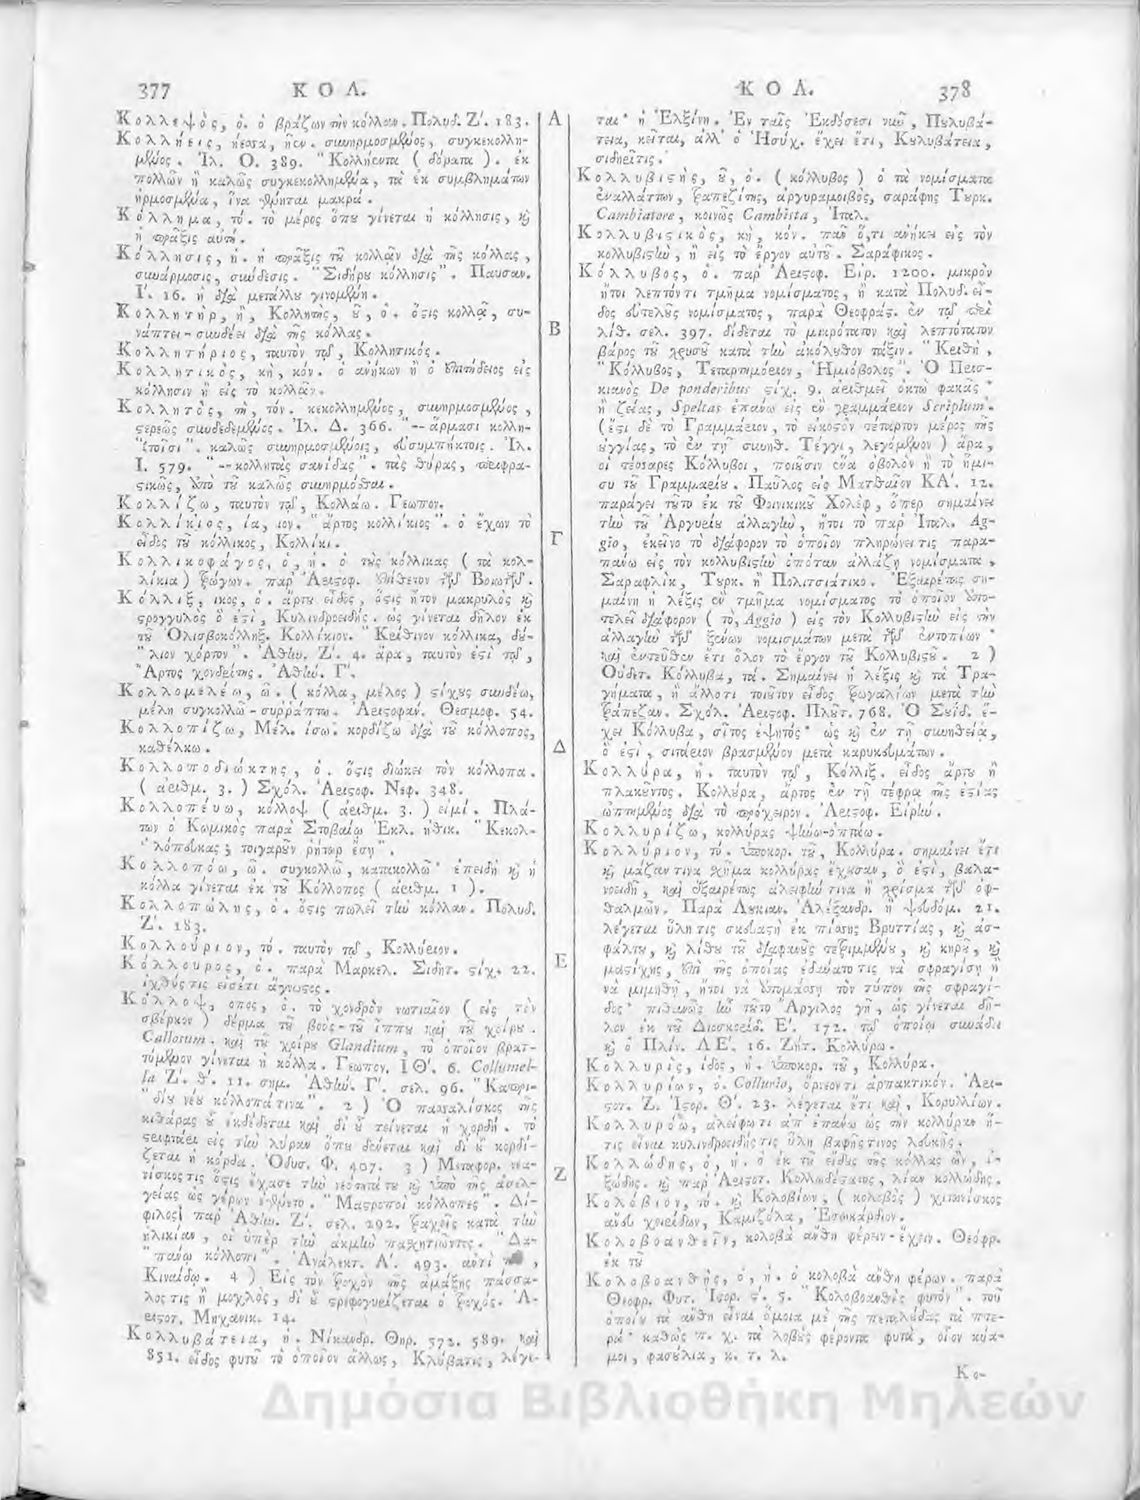 377 ΚΟΛ.
Κολλεψὸς, ὁ. ὁ βράζων τὴν κόλλαν. Πολυδ. Ζ΄. 183.
Κολλήεις, ήεσσα, ῆεν. συνηρμοσμένος, συγκεκολλη-
μένος. Ἰλ. Ο. 389. "Κολλήεντα ( δόρατα ). ἐκ
πολλῶν ἢ καλῶς συγκεκολλημένα, τὰ ἐκ συμβλημάτων
ἡρμοσμένα, ἵνα μακρά.
Κόλλημα, τό. τὸ μέρος ὅπου γίνεται ἡ κόλλησις, καὶ
ἡ πρᾶξις αὐτή.
Κόλλησις, ἡ. ἡ πρᾶξις τοῦ κολλᾷν διὰ τῆς κόλλας,
συνάρμοσις, σύνδεσις. "Σιδήρου κόλλησις". Παυσαν.
Ι΄. 16. ἡ διὰ μετάλλου γινομένη.
Κολλητὴρ, ἢ, Κολλητὴς, οῦ, ὁ. ὅστις κολλᾷ, συ-
νάπτει-συνδέει διὰ τῆς κόλλας.
Κολλητήριος, ταυτὸν τῷ, Κολλητικός.
Κολλητικὸς, κὴ, κόν. ὁ ἀνήκων ἢ ὁ ἐπιτήδειος εἰς
κόλλησιν ἢ εἰς τὸ κολλᾷν.
Κολλητὸς, τὴ, τόν. κεκολλημένος, συνηρμοσμένος,
στερεῶς συνδεδεμένος. Ἰλ. Δ. 366. "--ἅρμασι κολλη-
"τοῖσι". καλῶς συνηρμοσμένοις, εὐσυμπήκτοις. Ἰλ.
Ι. 579. "--κολλητὰς σανίδας". τὰς θύρας, περιφρα-
στικῶς, ἀπὸ τοῦ καλῶς συνηρμόσθαι.
Κολλίζω, ταυτὸν τῷ, Κολλάω. Γεωπον.
Κολλίκιος, ία, ιον. "ἄρτος κολλίκιος". ὁ ἔχων τὸ
εἶδος τοῦ κόλλικος, Κολλίκι.
Κολλικοφάγος, ὁ, ἡ. ὁ τοὺς κόλλικας ( τὰ κολ-
λίκια ) τρώγων. παρ' Ἀριστοφ. ἐπίθετον τῶν Βοιωτῶν.
Κόλλιξ, ικος, ὁ. ἄρτου εἶδος, ὅστις ἦτον μακρυλὸς καὶ
στρογγυλὸς ὅ ἐστι, Κυλινδροειδής. ὡς γίνεται δῆλον ἐκ
τοῦ Ὀλισβοκόλληξ. Κολλίκιον. "Κρίθινον κόλλικα, δού-
"λιον χόρτον". Ἀθήν. Ζ΄. 4. ἄρα, ταυτὸν ἐστὶ τῷ,
"Ἄρτος χονδρίτης. Ἀθήν. Γ΄.
Κολλομελέω, ῶ. ( κόλλα, μέλος ) στίχους συνδέω,
μέλη συγκολλῶ-συῤῥάπτω. Ἀριστοφάν. Θεσμοφ. 54.
Κολλοπίζω, Μέλ. ίσω. κορδίζω διὰ τοῦ κόλλοπος,
καθέλκω.
Κολλοποδιώκτης, ὁ. ὅστις διώκει τὸν κόλλοπα.
( ἀριθμ. 3. ) Σχόλ. Ἀριστοφ. Νεφ. 348.
Κολλοπεύω, κόλλοψ ( ἀριθμ. 3. ) εἰμί. Πλά-
των ὁ Κωμικὸς παρὰ Στοβαίῳ Ἐκλ. ἠθικ. "Κεκολ-
"λόπευκας; τοιγαροῦν ῥήτωρ ἔσῃ".
Κολλοπόω, ῶ. συγκολλῶ, κατακολλῶ· ἐπειδὴ καὶ ἡ
κόλλα γίνεται ἐκ τοῦ Κόλλοπος ( ἀριθμ. 1 ).
Κολλοπώλης, ὁ. ὅστις πωλεῖ τὴν κόλλαν. Πολυδ.
Ζ΄. 183.
Κολλούριον, τό. ταυτὸν τῷ, Κολλύριον.
Κόλλουρος, ὁ. παρὰ Μαρκελ. Σιδητ. στίχ. 22.
ἰχθύς τις εἰσέτι ἄγνωστος.
Κόλλοψ, οπος, ὁ. τὸ χονδρὸν νωτιαῖον ( εἰς τὸν
σβέρκον ) δέρμα τοῦ βοὸς-τοῦ ἵππου καὶ τοῦ χοίρου.
Callosum. καὶ τοῦ χοίρου Glandium, τὸ ὁποῖον βρατ-
τόμενον γίνεται ἡ κόλλα. Γεωπον. ΙΘ΄. 6. Collumel-
la Ζ΄. θ΄. 11. σημ. Ἀθήν. Γ΄. σελ. 96. "Καπρι-
"δίου νέου κόλλοπά τινα". 2 ) Ὁ πασσαλίσκος τῆς
κιθάρας ᾧ ἐκδέδεται καὶ δι' οὗ τείνεται ἡ χορδή. τὸ
στριφτάρι εἰς τὴν λύραν ὅπου δένεται καὶ δι' οὗ κορδί-
ζεται ἡ κόρδα. Ὀδυσ. Φ. 407. 3 ) Μεταφορ. νεα-
νίσκος τις ὅστις ἔχασε τὴν νεότητά του καὶ ὑπὸ τῆς ἀσελ-
γείας ὡς γέρων ἐγένετο. "Μαστροποὶ κόλλοπες". Δί-
φιλος παρ' Ἀθήν. Ζ΄. σελ. 292. τραχεῖς κατὰ τὴν
ἡλικίαν, οἱ ὑπὲρ τὴν ἀκμὴν παχητιῶντες. "Δα-
"πάνῳ κόλλοπι". Ἀνάλεκτ. Α΄. 493. ἀντὶ τοῦ,
Κιναίδῳ. 4 ) Εἰς τὸν τροχὸν τῆς ἁμάξης πάσσα-
λός τις ἢ μοχλὸς, δι' οὗ στριφογυρίζεται ὁ τροχός. Ἀ-
ριστοτ. Μηχανικ. 14.
Κολλυβάτεια, ἡ. Νίκανδρ. Θηρ. 572. 589. καὶ
851. εἶδος φυτοῦ τὸ ὁποῖον ἄλλως, Κλύβατις, λέγε-
Α
Β
Γ
Δ
Ε
Ζ
ΚΟΛ. 378
ται· ἡ Ἑλξίνη. Ἐν ταῖς Ἐκδόσεσι νῦν, Πουλυβά-
τεια, κεῖται, ἀλλ' ὁ Ἡσύχ. ἔχει ἔτι, Κουλυβάτεια,
σιδηρῖτις.
Κολλυβιστὴς, οῦ, ὁ. ( κόλλυβος ) ὁ τὰ νομίσματα
ἐναλλάττων, τραπεζίτης, ἀργυραμοιβὸς, σαράφης Τουρκ.
Cambiatore, κοινῶς Cambista, Ἰταλ.
Κολλυβιστικὸς, κὴ, κόν. πᾶν ὅ,τι ἀνήκει εἰς τὸν
κολλυβιστὴν, ἢ εἰς τὸ ἔργον αὐτοῦ. Σαράφικος.
Κόλλυβος, ὁ. παρ' Ἀριστοφ. Εἰρ. 1200. μικρὸν
ἤτοι λεπτόν τι τμῆμα νομίσματος, ἢ κατὰ Πολυδ. εἶ-
δος εὐτελοῦς νομίσματος, παρὰ Θεοφράστ. ἐν τῷ περὶ
λίθ. σελ. 397. δίδεται τὸ μικρότατον καὶ λεπτότατον
βάρος τοῦ χρυσοῦ κατὰ τὴν ἀκόλουθον τάξιν. "Κριθὴ,
"Κόλλυβος, Τεταρτημόριον, Ἡμιόβολος". Ὁ Πρισ-
κιανὸς De ponderibus στίχ. 9. ἀριθμεῖ ὀκτὼ φακὰς
ἢ ζείας, Speltas ἐπάνω εἰς ἓν γραμμάριον Scriptum.
(ἔστι δὲ τὸ Γραμμάριον, τὸ εἰκοστὸν τέταρτον μέρος τῆς
οὐγγίας, τὸ ἐν τῇ συνηθ. Τέγγι, λεγόμενον ) ἄρα,
οἱ τέσσαρες Κόλλυβοι, ποιοῦσιν ἕνα ὀβολὸν ἢ τὸ ἥμι-
συ τοῦ Γραμμαρίου. Παῦλος εἰς Ματθαῖον ΚΑ΄. 12.
παράγει τοῦτο ἐκ τοῦ Φοινικικοῦ Χολέφ, ὅπερ σημαίνει
τὴν τοῦ Ἀργυρίου ἀλλαγὴν, ἤτοι τὸ παρ' Ἰταλ. Ag-
gio, ἐκεῖνο τὸ διάφορον τὸ ὁποῖον πληρώνει τις παρα-
πάνω εἰς τὸν κολλυβιστὴν ὁπόταν ἀλλάζῃ νομίσματα,
Σαραφλὶκ, Τουρκ. ἢ Πολιτσιάτικο. Ἐξαιρέτως ση-
μαίνῃ ἡ λέξις ἓν τμῆμα νομίσματος τὸ ὁποῖον ἀπο-
τελεῖ διάφορον ( τὸ, Aggio ) εἰς τὸν Κολλυβιστὴν εἰς τὴν
ἀλλαγὴν τῶν ξένων νομισμάτων μετὰ τῶν ἐντοπίων·
καὶ ἐντεῦθεν ἔτι ὅλον τὸ ἔργον τοῦ Κολλυβιστοῦ. 2 )
Οὐδετ. Κόλλυβα, τά. Σημαίνει ἡ λέξις καὶ τὰ Τρα-
γήματα, ἢ ἄλλο τι τοιοῦτον εἶδος τρωγαλίων μετὰ τὴν
τράπεζαν. Σχόλ. Ἀριστοφ. Πλοῦτ. 768. Ὁ Σουΐδ. ἔ-
χει Κόλλυβα, σῖτος ἑψητός· ὡς καὶ ἐν τῇ συνηθείᾳ,
ὅ ἐστι, σιτάριον βρασμένον μετὰ καρυκευμάτων.
Κολλύρα, ἡ. ταυτὸν τῷ, Κόλλιξ. εἶδος ἄρτου ἢ
πλακοῦντος. Κολλύρα, ἄρτος ἐν τῇ τέφρᾳ τῆς ἑστίας
ὠπτημένος διὰ τὸ πρόχειρον. Ἀριστοφ. Εἰρήν.
Κολλυρίζω, κολλύρας ψήνω-ὀπτάω.
Κολλύριον, τό. ὑποκορ. τοῦ, Κολλύρα. σημαίνει ἔτι
καὶ μάζαν τινα σχῆμα κολλύρας ἔχουσαν, ὅ ἐστι, βαλα-
νοειδῆ, καὶ ἐξαιρέτως ἀλειφήν τινα ἢ χρίσμα τῶν ὀφ-
θαλμῶν. Παρὰ Λουκιαν. Ἀλέξανδρ. ἢ ψευδόμ. 21.
λέγεται ὕλη τις σκευαστὴ ἐκ πίσσης Βρυττίας, καὶ ἀσ-
φάλτου, καὶ λίθου τοῦ διαφανοῦς τετριμμένου, καὶ κηροῦ, καὶ
μαστίχης, ἐπὶ τῆς ὁποίας ἐδύνατό τις νὰ σφραγίσῃ ἢ
νὰ μιμηθῇ, ἤτοι νὰ ἀπομάσσῃ τὸν τύπον τῆς σφραγί-
δος· πιθανῶς ἦν τοῦτο Ἄργιλος γῆ, ὡς γίνεται δῆ-
λον ἐκ τοῦ Διοσκορίδ. Ε΄. 172. τῷ ὁποίῳ συνάδει
καὶ ὁ Πλίν. ΛΕ΄. 16. Ζήτ. Κολλύρα.
Κολλυρὶς, ίδος, ἡ. ὑποκορ. τοῦ, Κολλύρα.
Κολλυρίων, ὁ. Collurio, ὄρνεόν τι ἁρπακτικόν. Ἀρι-
στοτ. Ζ. Ἱστορ. Θ΄. 23. λέγεται ἔτι καὶ, Κορυλλίων.
Κολλυρόω, ἀλείφω τι ἀπ' ἐπάνω ὡς τὴν κολλύραν ἥ-
τις εἶναι κυλινδροειδής τις ὕλη βαφῆς τινος λευκῆς.
Κολλώδης, ὁ, ἡ. ὁ ἐκ τοῦ εἴδους τῆς κόλλας ὢν, ἰ-
ξώδης. καὶ παρ' Ἀριστοτ. Κολλωδέστατος, λίαν κολλώδης.
Κολόβιον, τό. καὶ Κολοβίων. ( κολοβὸς ) χιτωνίσκος
ἄνευ χειρίδων, Καμιζόλα, Ἐσωκάρδιον.
Κολοβοανθεῖν, κολοβὰ ἄνθη φέρειν-ἔχειν. Θεόφρ.
ἐκ τοῦ
Κολοβοανθὴς, ὁ, ἡ. ὁ κολοβὰ ἄνθη φέρων. παρὰ
Θεοφρ. Φυτ. Ἱστορ. ς΄. 5. "Κολοβοανθὲς φυτόν". τοῦ
ὁποίου τὰ ἄνθη εἶναι ὅμοια μὲ τῆς πεταλούδας τὰ πτε-
ρά· καθὼς π. χ. τὰ λοβοὺς φέροντα φυτὰ, οἷον κύα-
μοι, φασούλια, κ. τ. λ.
Κο-
Δημόσια Βιβλιοθήκη Μηλεών